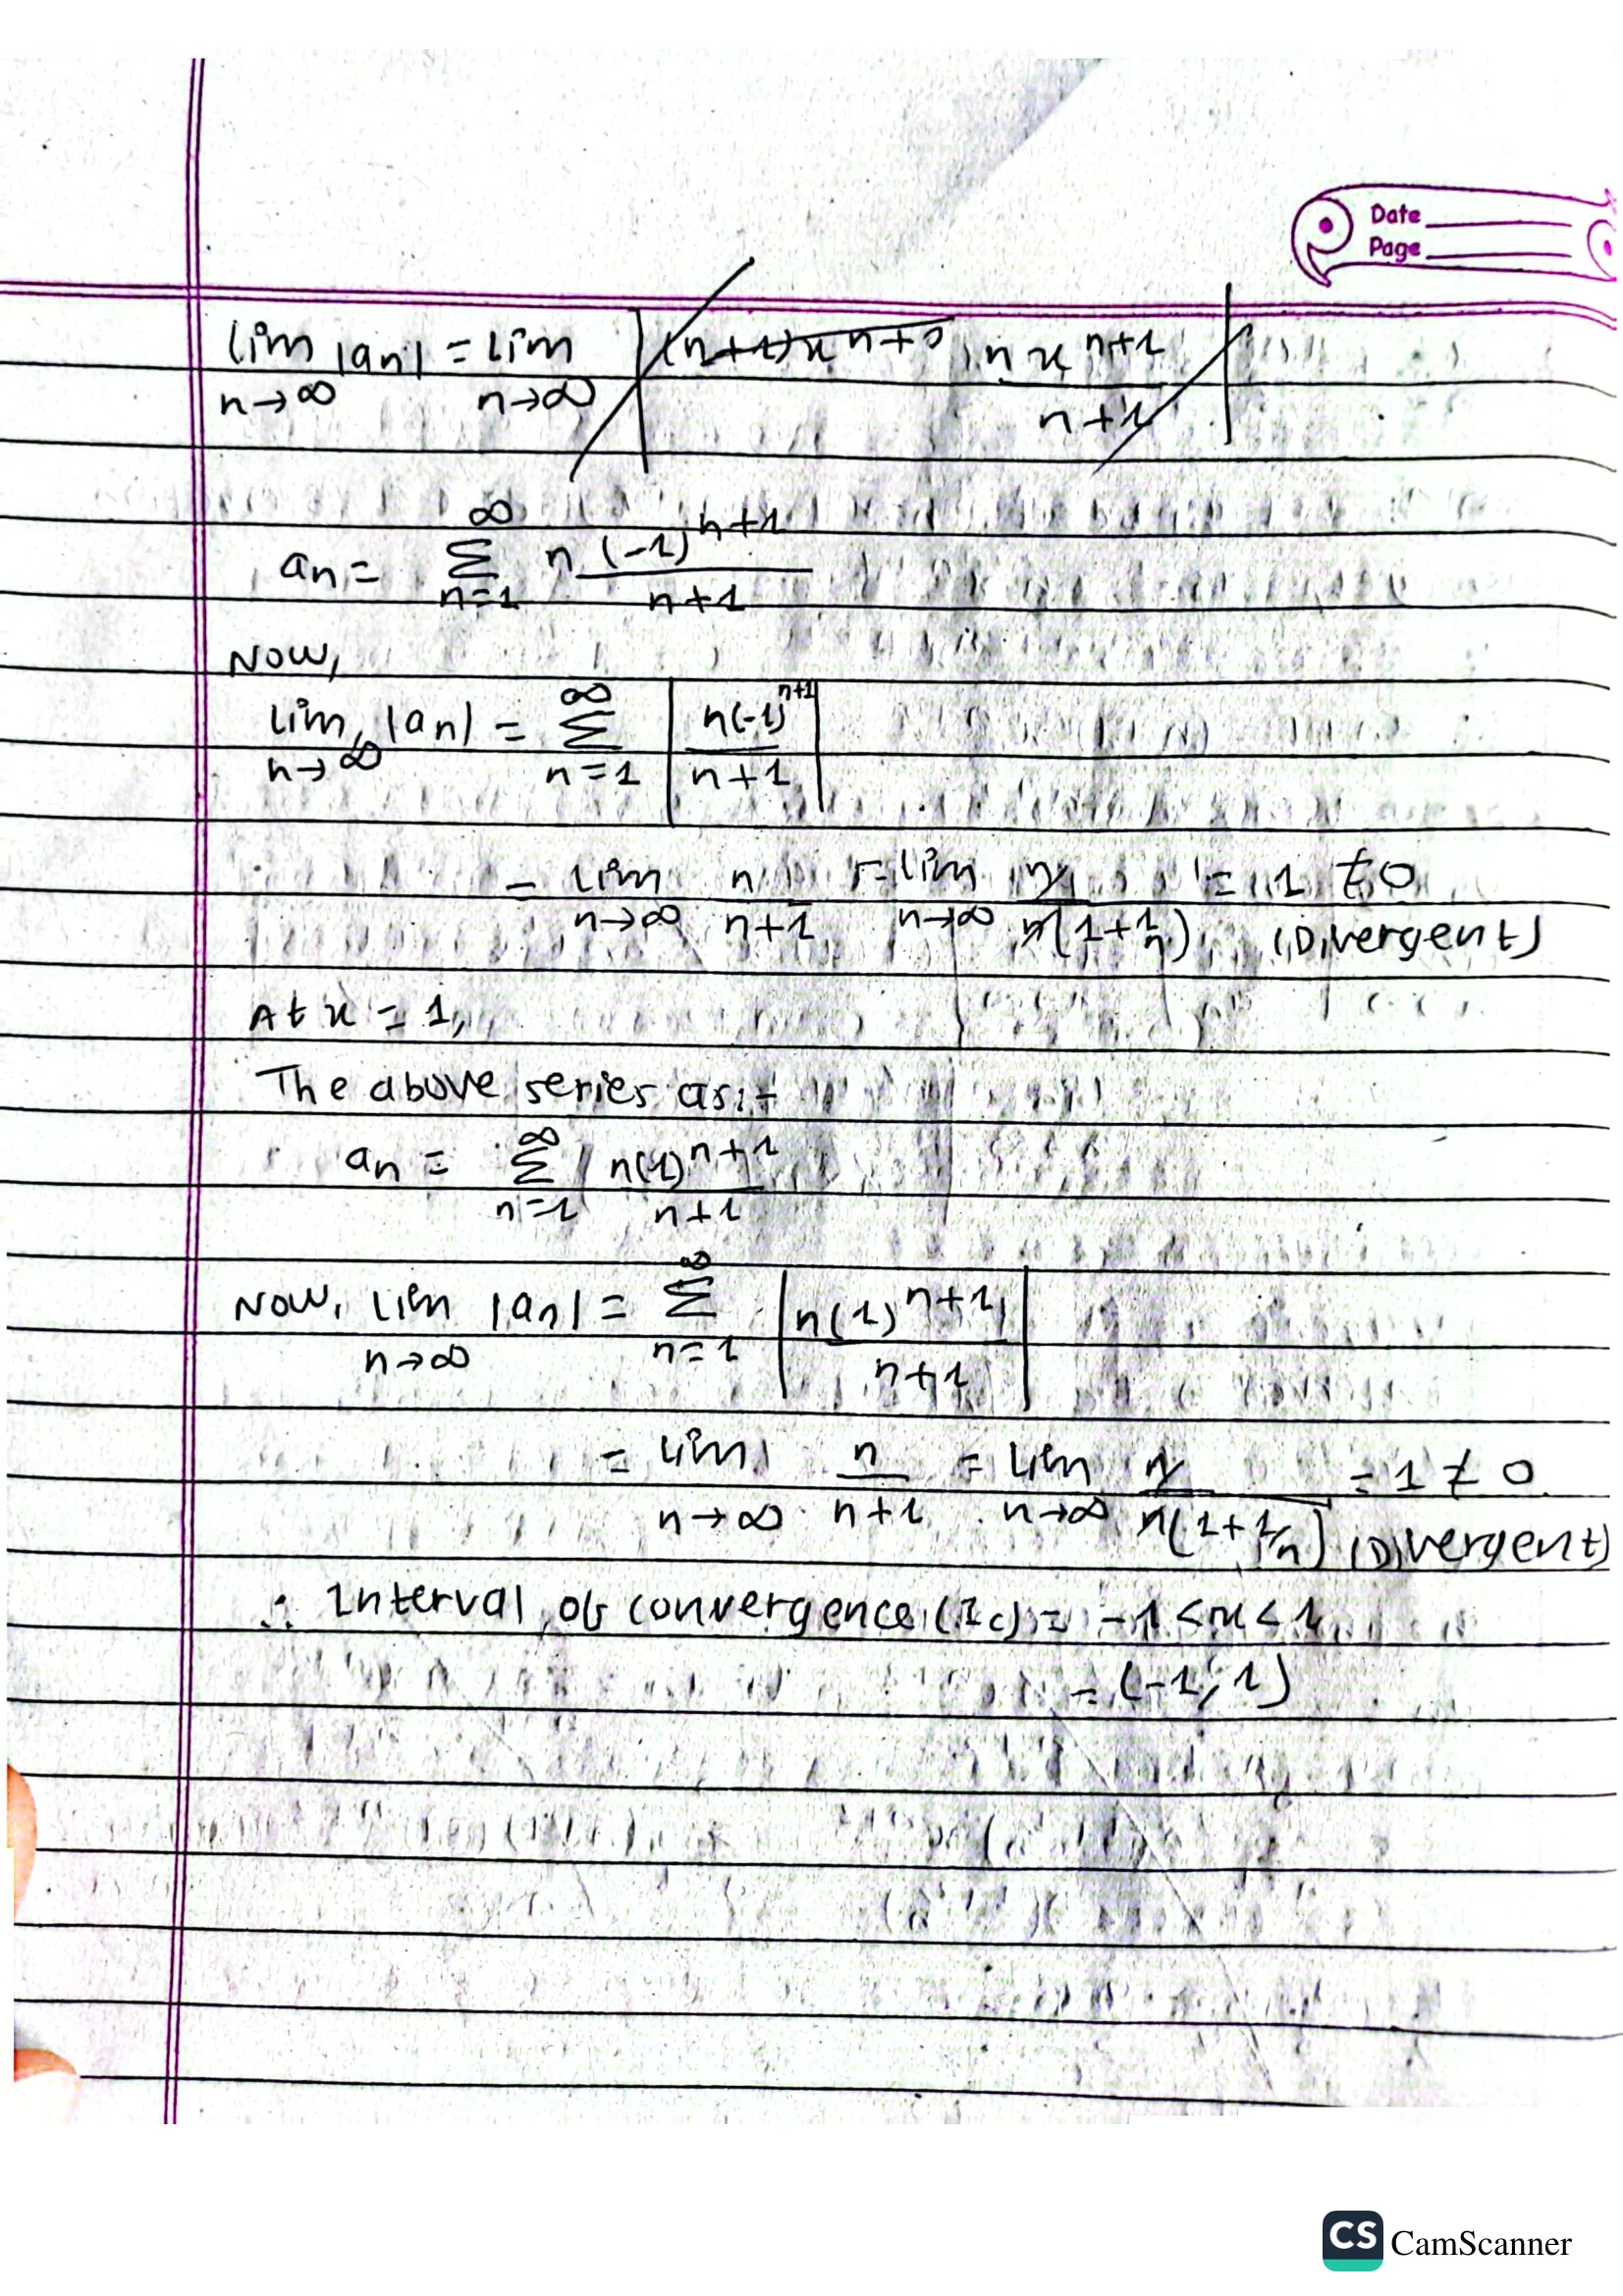 Date
Page
lim n→∞ |an| = lim n→∞ | n x^n+1 / n+1 |
an = ∞ Σ n=1 n (-1)^n+1 / n+1
Now,
lim n→∞ |an| = ∞ Σ n=1 | n(-1)^n+1 / n+1 |
= lim n→∞ n / n+1 = lim n→∞ n / n(1+1/n) = 1 ≠ 0
(Divergent)
At x = 1,
The above series as:-
an = ∞ Σ n=1 n(1)^n+1 / n+1
Now, lim n→∞ |an| = ∞ Σ n=1 | n(1)^n+1 / n+1 |
= lim n→∞ n / n+1 = lim n→∞ n / n(1+1/n) = 1 ≠ 0
(Divergent)
∴ Interval of convergence (Ic) = -1 < x < 1
= (-1, 1)
CS CamScanner